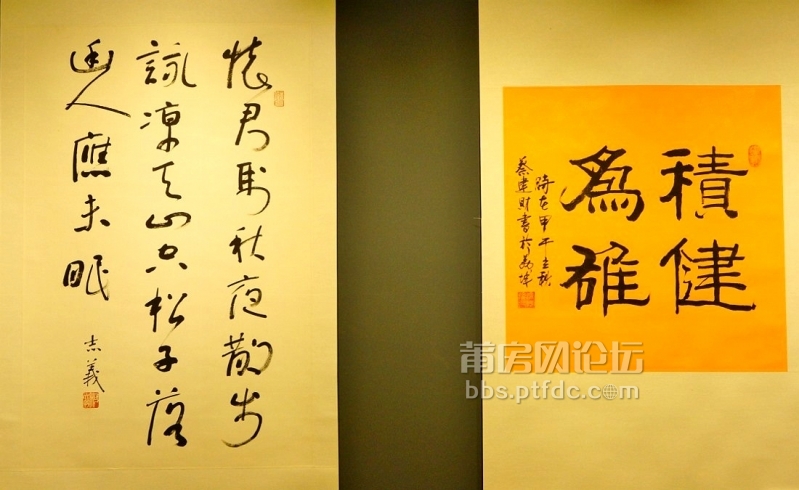 懷君属秋夜散步
詠涼天山空松子落
幽人應未眠
志義
積健
為雄
時在甲午立秋
蔡建財書於
莆房网论坛
bbs.ptfdc.com